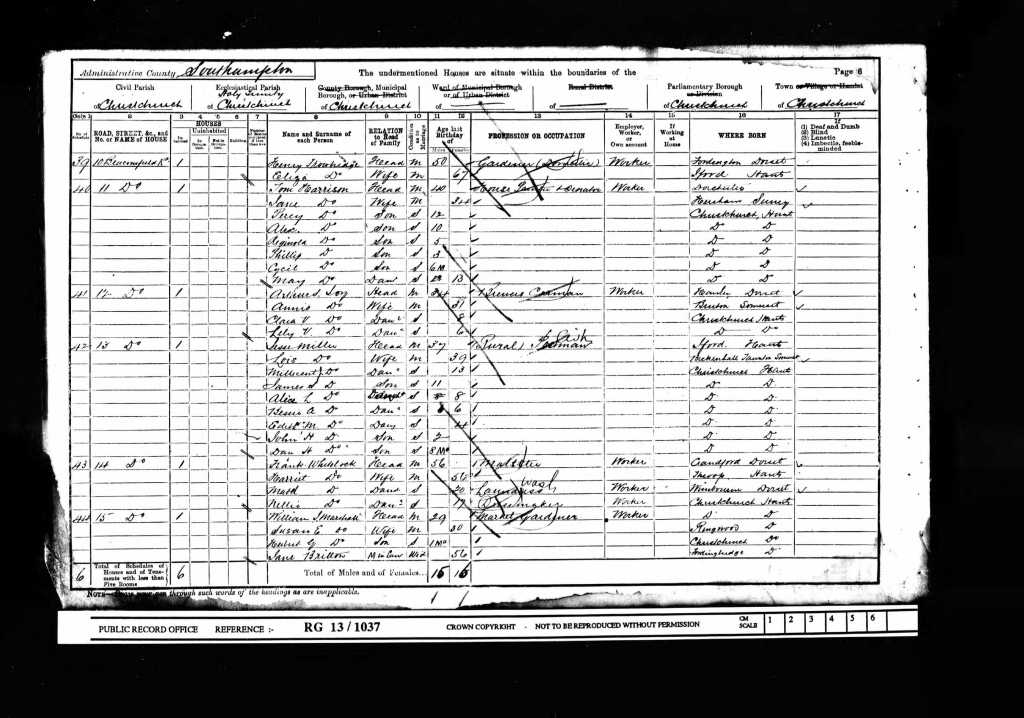 Administrative County Southampton
The undermentioned Houses are situate within the boundaries of the
Page 6
Civil Parish of Christchurch
Ecclesiastical Parish Holy Trinity of Christchurch
County Borough, Municipal Borough, or Urban District of Christchurch
Ward of Municipal Borough or of Urban District of
Rural District of
Parliamentary Borough or Division of Christchurch
Town or Village or Hamlet of Christchurch
Cols. 1 2 3 4 5 6 7 8 9 10 11 12 13 14 15 16 17
No. of Schedule
ROAD, STREET, &c., and No. or NAME of HOUSE
HOUSES
Inhabited
Uninhabited
In Occupation
Not in Occupation
Building
Name and Surname of each Person
RELATION to Head of Family
Condition as to Marriage
Age last Birthday of
Males
Females
PROFESSION OR OCCUPATION
Employer, Worker, or Own account
If Working at Home
WHERE BORN
If (1) Deaf and Dumb (2) Blind (3) Lunatic (4) Imbecile, feeble-minded
39 10 Beaconsfield Rd 1 Henry Head M 50 Gardener (Domestic) Worker Fordington Dorset
Eliza Do Wife M 67 Iford Hants
40 11 Do 1 Tom Harrison Head M 40 House & Decorator Worker
Jane Do Wife M 34 Hersham Surrey
Percy Do Son S 12 Christchurch, Hant
Alec D Son S 10 D D
Reginald D Son S 5 D D
Phillip D Son S 3 D D
Cyril D Son S 6m D D
May Do Daur S 13 D D
41 12 Do 1 Head M 34 Brewers Carman Worker Dorset
Annie Do Wife M 31 Somerset
Clara V Do Daur S 8 Christchurch Hants
Lily V. Do Daur S 6 D Do
42 13 Do 1 Jesse Miller Head M 37 Rural Postman Iford Hants
Lois Do Wife M 39 Taunton Somst
Millicent J. Do Daur S 13 Christchurch Hant
James S D Son S 11 D D
Alice L Do S 8 D D
Bessie A Do Daur S 6 D D
Edith M Do Daur S 4 D D
John H D Son S 2 D D
Dan H Do Son S 8 Mo D D
43 14 Do 1 Frank Whitelock Head M 56 Maltster Worker Cranford Dorset
Harriet Do Wife M 56 Throop Hants
Maud D Daur S 20 Laundress Wash Worker Wimbourn Dorset
Nellie D Daur S 17 Worker Christchurch Hants
44 15 Do 1 William J. Marshall Head M 29 Market Gardener Worker D D
Susan E Do Wife M 30 Ringwood D
Herbert G Do Son S 1 Mo Christchurch Do
Jane Brixton M in Law Wid 56 Fordingbridge D
6 Total of Schedules of Houses and of Tenements with less than Five Rooms 6
Total of Males and of Females... 15 16
NOTE—Draw your pen through such words of the headings as are inapplicable.
PUBLIC RECORD OFFICE REFERENCE :- RG 13 / 1037 CROWN COPYRIGHT - NOT TO BE REPRODUCED WITHOUT PERMISSION
CM SCALE 1 2 3 4 5 6